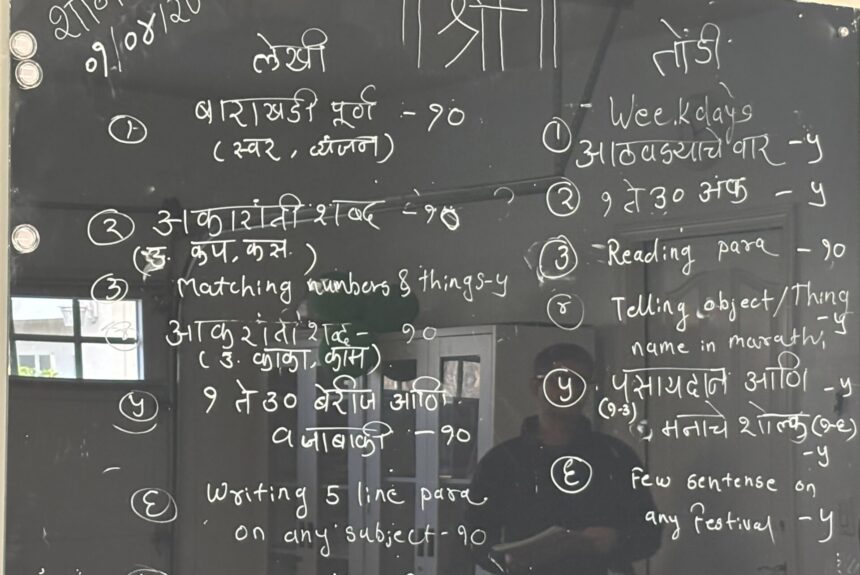 श्री
०१/०४/२०
लेखी
१ बाराखडी पूर्ण - १०
(स्वर, व्यंजन)
२ अकारांती शब्द - १०
(उ. कप, कस.)
३ Matching numbers & things-५
आकारांती शब्द - १०
(उ. काका, काम)
५ १ ते ३० बेरीज आणि
वजाबाकी - १०
६ Writing 5 line para
on any subject - १०
तोंडी
- Weekdays
१ आठवड्याचे वार - ५
२ १ ते ३० अंक - ५
३ - Reading para - १०
४ Telling object/Thing
- ५
name in marathi
५ पसायदान आणि - ५
(१-३)
मनाचे श्लोक (१-६)
- ५
६ Few sentense on
any Festival - ५